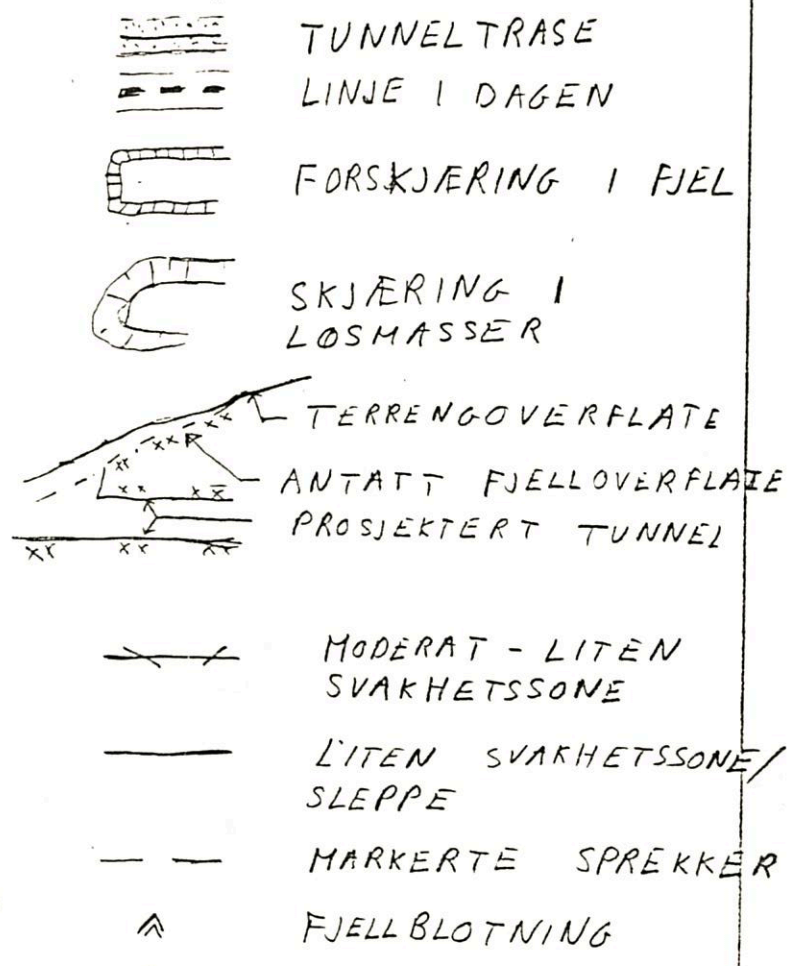 TUNNELTRASE
LINJE I DAGEN
FORSKJÆRING I FJEL
SKJÆRING I
LØSMASSER
TERRENGOVERFLATE
ANTATT FJELLOVERFLATE
PROSJEKTERT TUNNEL
MODERAT - LITEN
SVAKHETSSONE
LITEN SVAKHETSSONE/
SLEPPE
MARKERTE SPREKKER
FJELLBLOTNING